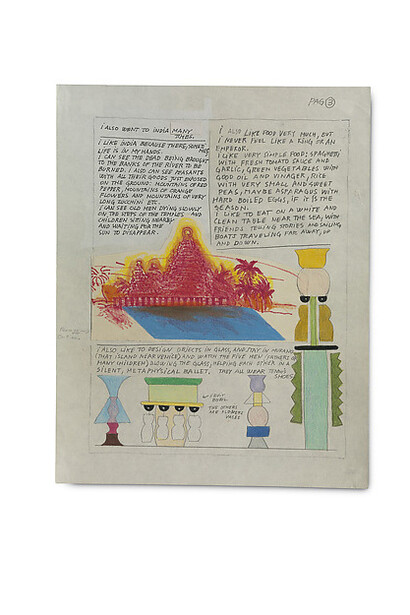 PAG ③
I ALSO WENT TO INDIA MANY
TIMES.
I LIKE INDIA BECAUSE THERE, SOMETIMES
LIFE IS IN MY HANDS.
I CAN SEE THE DEAD BEING BROUGHT
TO THE BANKS OF THE RIVER TO BE
BURNED. I ALSO CAN SEE PEASANTS
WITH ALL THEIR GOODS JUST EXPOSED
ON THE GROUND: MOUNTAINS OF RED
PEPPER, MOUNTAINS OF ORANGE
FLOWERS AND MOUNTAINS OF VERY
LONG ZUCCHINI ETC.
I CAN SEE OLD MEN DYING SLOWLY
ON THE STEPS OF THE TEMPLES AND
CHILDREN SITTING NEARBY
AND WAITING FOR THE
SUN TO DISAPPEAR.
I ALSO LIKE FOOD VERY MUCH, BUT
I NEVER FEEL LIKE A KING OR AN
EMPEROR.
I LIKE VERY SIMPLE FOOD: SPAGHETTI
WITH FRESH TOMATO SAUCE AND
GARLIC, GREEN VEGETABLES WITH
GOOD OIL AND VINAGER, RICE
WITH VERY SMALL AND SWEET
PEAS, MAYBE ASPARAGUS WITH
HARD BOILED EGGS, IF IT IS THE
SEASON.
I LIKE TO EAT ON A WHITE AND
CLEAN TABLE NEAR THE SEA, WITH
FRIENDS TELLING STORIES AND SAILING
BOATS TRAVELING FAR AWAY, UP
AND DOWN.
I ALSO LIKE TO DESIGN OBJECTS IN GLASS, AND STAY IN MURANO
(THAT ISLAND NEAR VENICE) AND WATCH THE FIVE MEN (FATHERS OF
MANY CHILDREN) BLOWING THE GLASS, HELPING EACH OTHER IN A
SILENT, METAPHYSICAL BALLET. THEY ALL WEAR TENNIS
SHOES
FRUIT
BOWL
THE OTHERS
ARE FLOWERS
VASES